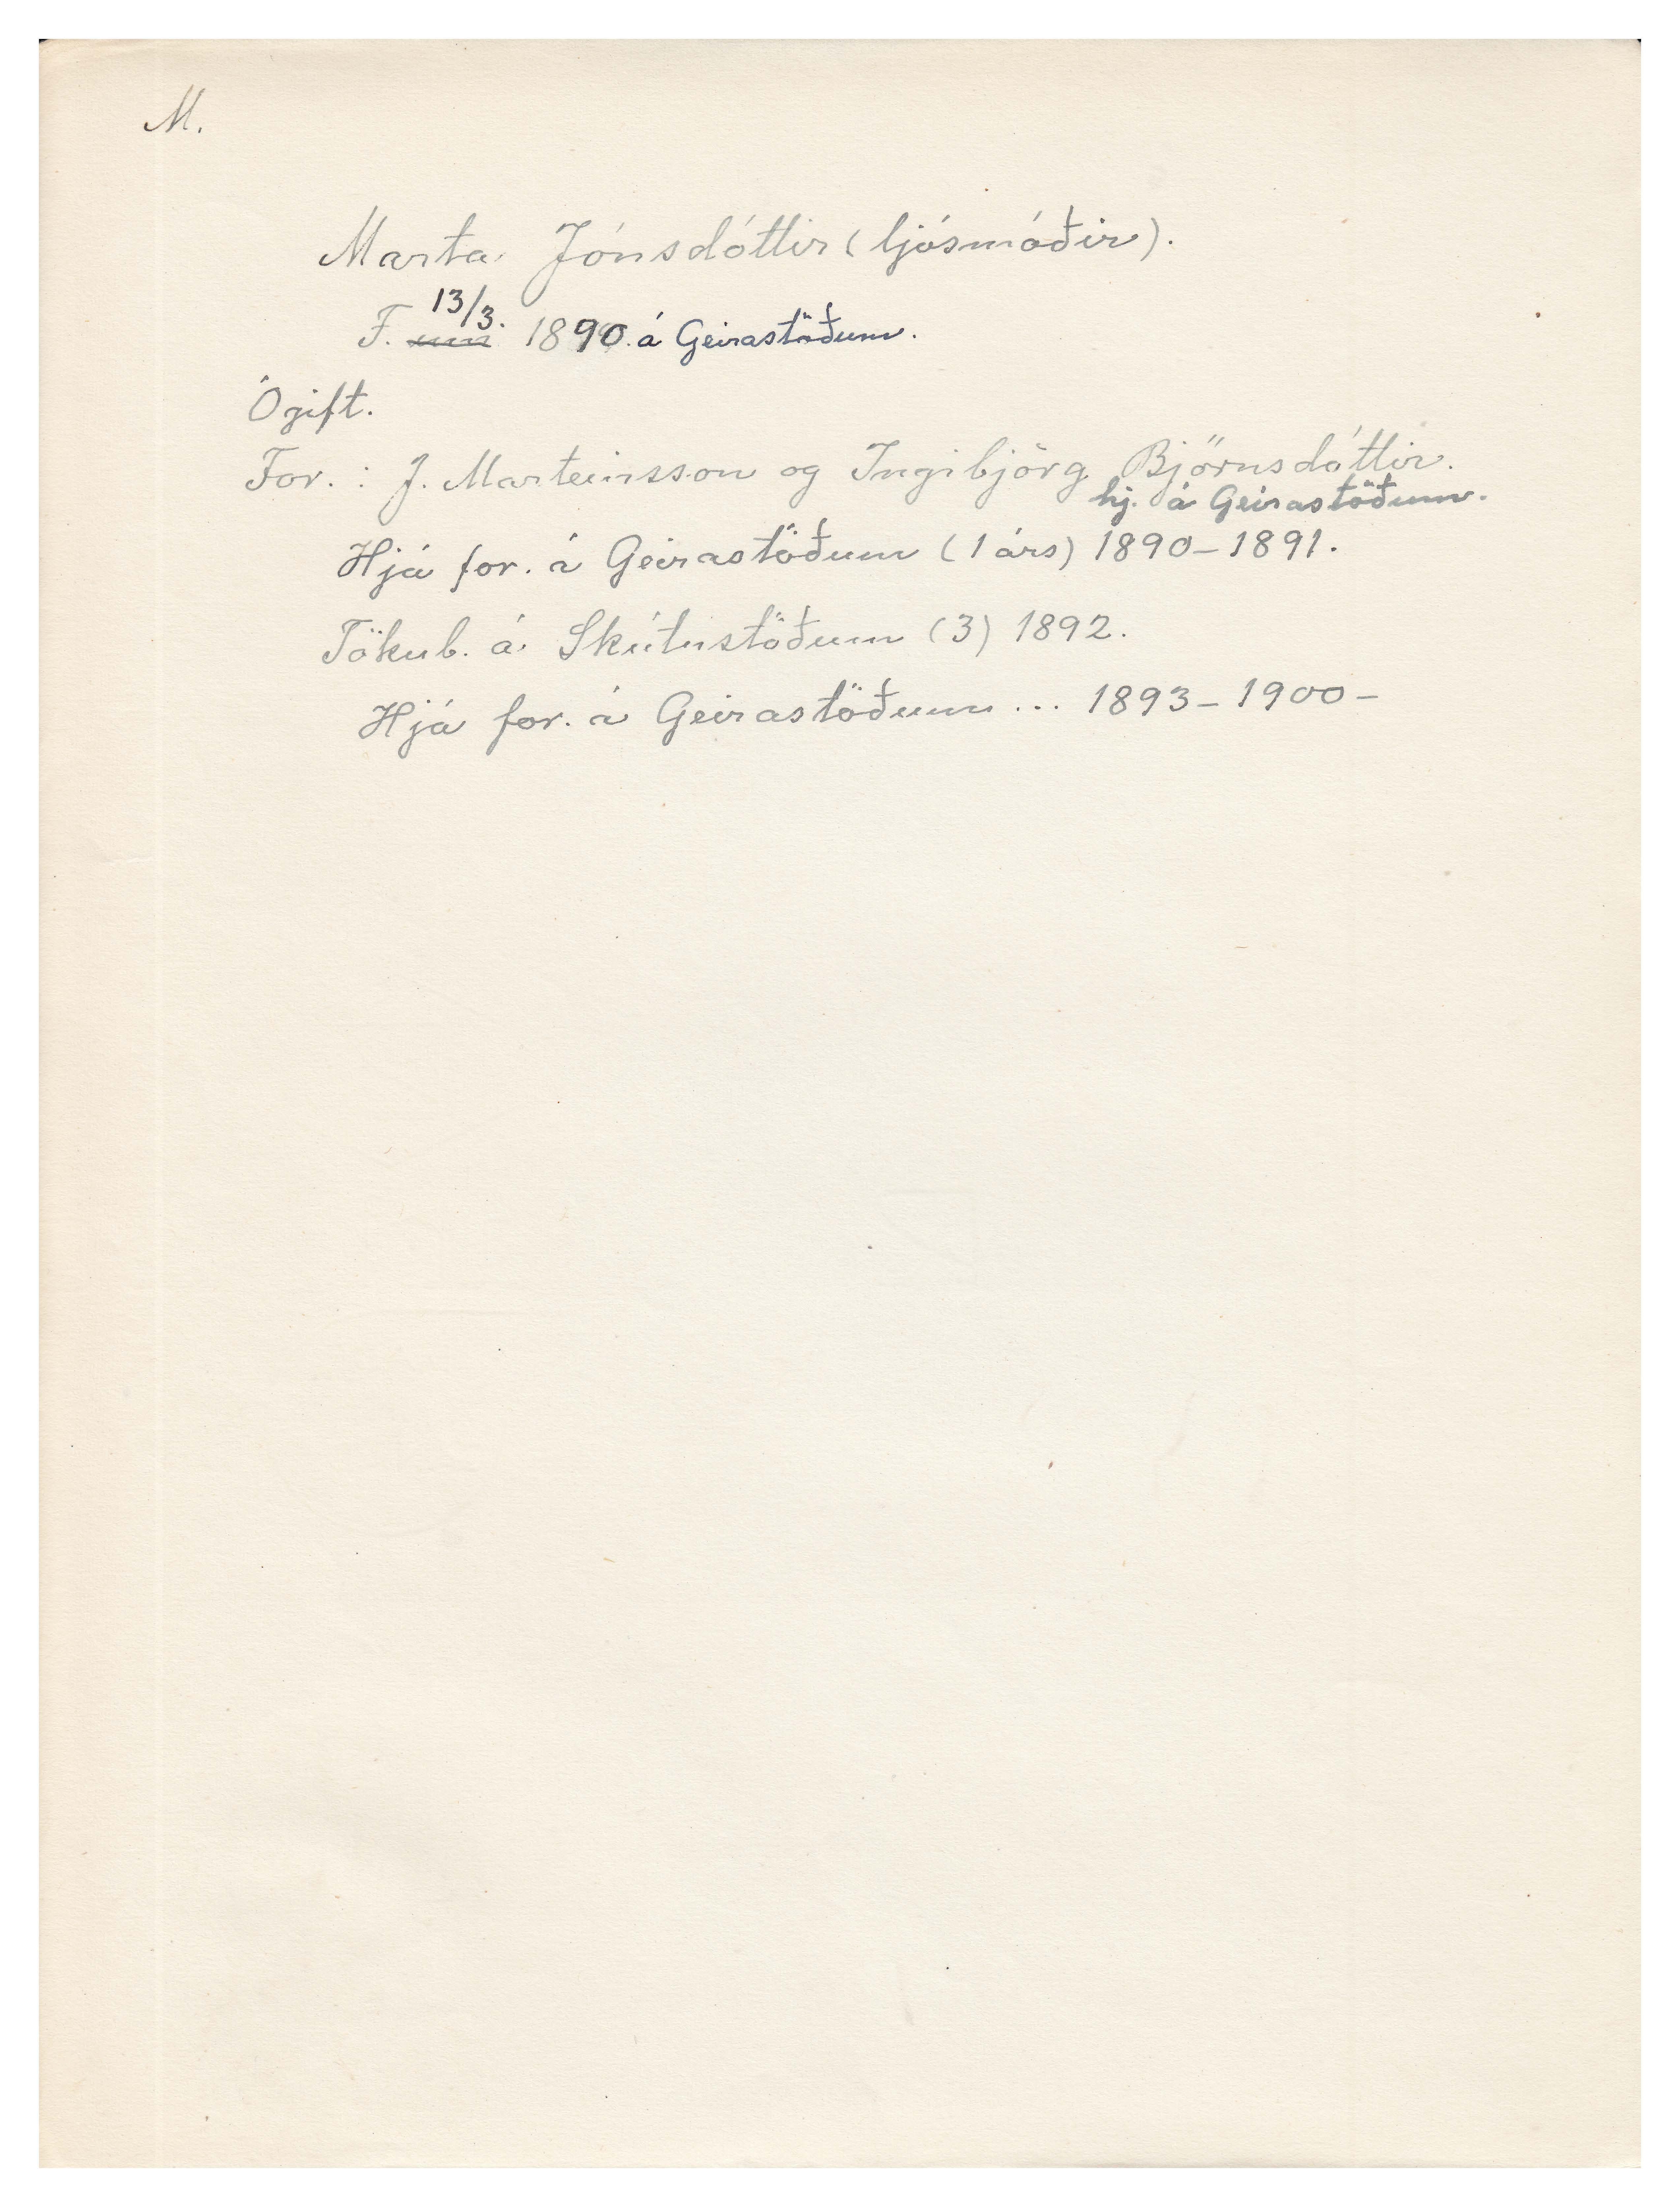 M.
Marta Jónsdóttir (ljósmóðir).
13/3.
F. um 1890 á Geirastöðum.
Ógift.
For. : J. Marteinsson og Ingibjörg Björnsdóttir.
hj. á Geirastöðum.
Hjá for. á Geirastöðum (1 árs) 1890-1891.
Tökub. á Skútustöðum (3) 1892.
Hjá for. á Geirastöðum ... 1893-1900-